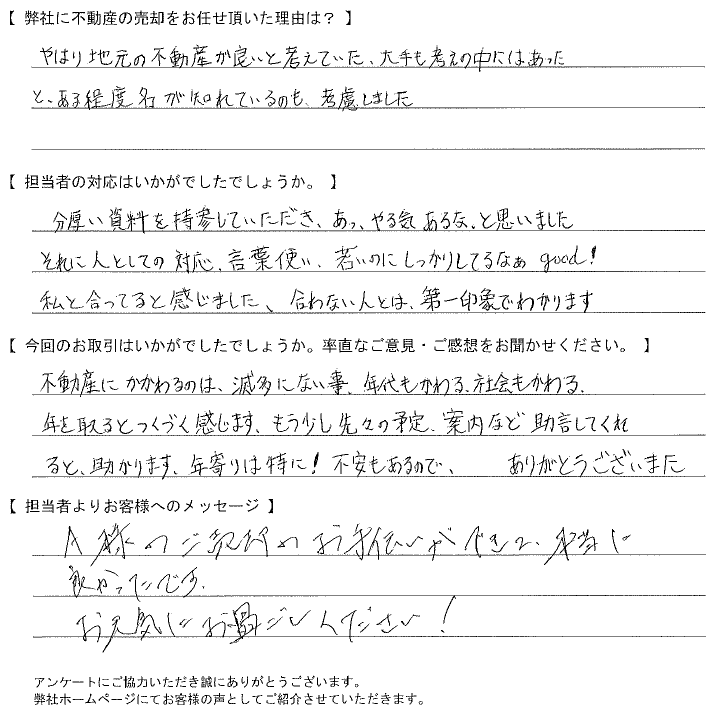 【 弊社に不動産の売却をお任せ頂いた理由は？ 】
やはり地元の不動産が良いと考えていた、大手も考えの中にはあった
と、ある程度名が知れているのも、考慮しました
【 担当者の対応はいかがでしたでしょうか。 】
分厚い資料を持参していただき、あっ、やる気あるな。と思いました
それに人としての対応、言葉使い、若いのにしっかりしてるなぁ good!
私と合ってると感じました、合わない人とは、第一印象でわかります
【 今回のお取引はいかがでしたでしょうか。率直なご意見・ご感想をお聞かせください。 】
不動産にかかわるのは、滅多にない事、年代もかわる、社会もかわる、
年を取るとつくづく感じます、もう少し先々の予定、案内など助言してくれ
ると、助かります、年寄りは特に！不安もあるので、 ありがとうございまた
【 担当者よりお客様へのメッセージ 】
A様のご売却のお手伝いができて、本当に
良かったです。
お元気にお過ごしください！
アンケートにご協力いただき誠にありがとうございます。
弊社ホームページにてお客様の声としてご紹介させていただきます。